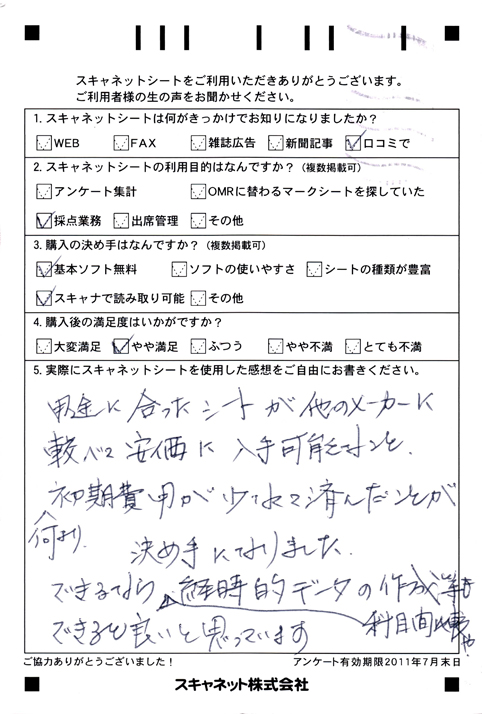 スキャネットシートをご利用いただきありがとうございます。
ご利用者様の生の声をお聞かせください。
1. スキャネットシートは何がきっかけでお知りになりましたか?
WEB FAX 雑誌広告 新聞記事 口コミで
2. スキャネットシートの利用目的はなんですか? (複数掲載可)
アンケート集計 OMRに替わるマークシートを探していた
採点業務 出席管理 その他
3. 購入の決め手はなんですか? (複数掲載可)
基本ソフト無料 ソフトの使いやすさ シートの種類が豊富
スキャナで読み取り可能 その他
4. 購入後の満足度はいかがですか?
大変満足 やや満足 ふつう やや不満 とても不満
5. 実際にスキャネットシートを使用した感想をご自由にお書きください。
用途に合ったシートが他のメーカーに
較べて安価に入手可能なこと、
初期費用が少なくて済んだことが
何より、決め手になりました。
できるなら、経時的データの作成等も
科目間比較や
できると良いと思っています
ご協力ありがとうございました! アンケート有効期限2011年7月末日
スキャネット株式会社